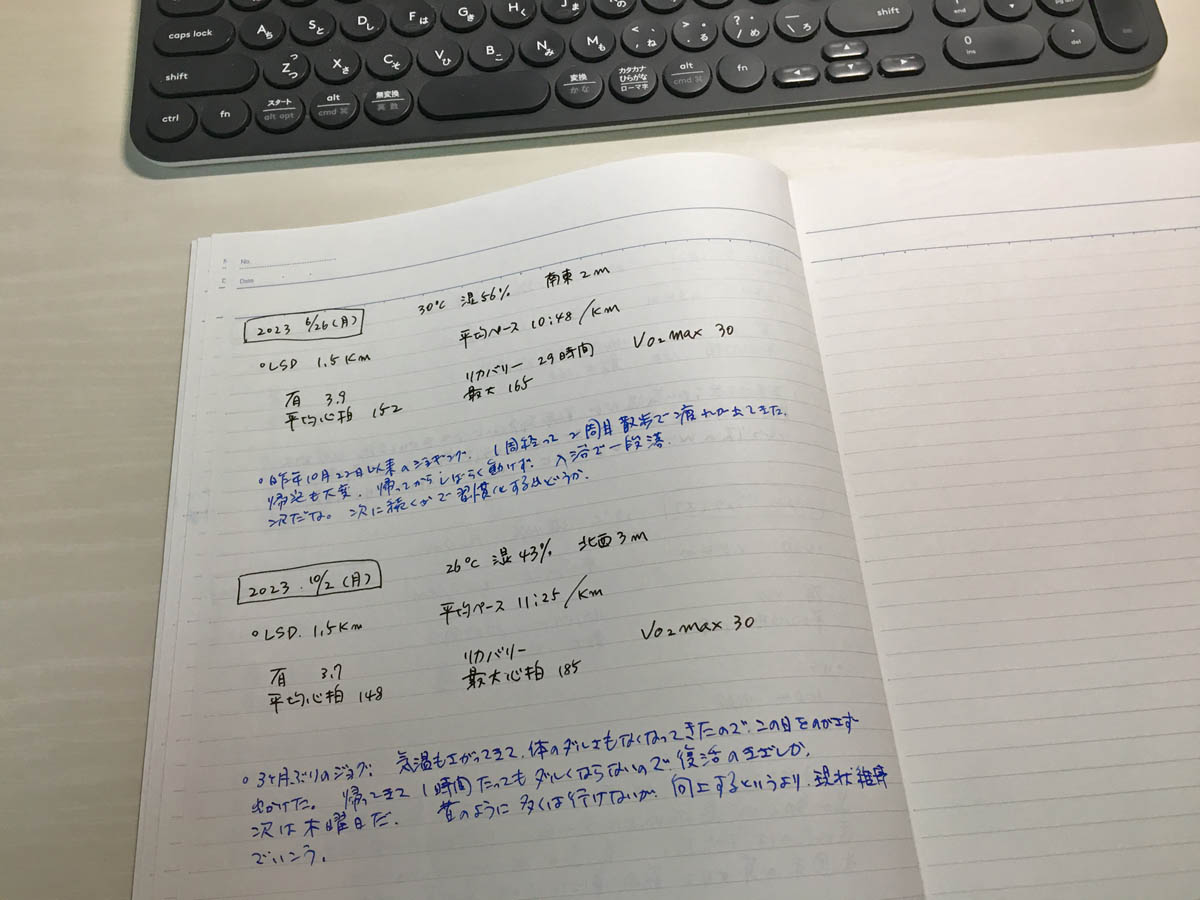 caps lock A ち S と D し F は G き H く J ま
shift Z つ っ X さ C そ V ひ B こ N み M も < 、 , ね > 。 . る ? ・ / め _ \ ろ shift
ctrl fn スタート alt opt alt cmd ⌘ 無変換 英数 変換 かな カタカナ ひらがな ローマ字 alt cmd ⌘ fn 0 ins . del
end
No.
Date
30℃ 湿56% 南東2m
2023 6/26(月)
平均ペース 10:48/Km
°LSD 1.5Km
リカバリー 29時間 VO2max 30
有 3.9
最大 165
平均心拍 152
°昨年10月22日以来のジョギング. 1周経って2周目散歩で疲れが出てきた.
帰宅も大変. 帰ってからしばらく動けず. 入浴で一段落.
次だな. 次に続くかで習慣化するかどうか.
26℃ 湿43% 北西3m
2023.10/2(月)
平均ペース 11:25/Km
°LSD. 1.5Km
リカバリー VO2max 30
有 3.7
最大心拍 185
平均心拍 148
°3ヶ月ぶりのジョグ. 気温も下がってきて、体のダルさもなくなってきたので、この日をのがさず
出かけた. 帰ってきて1時間たってもダルくならないので、復活のきざしか.
次は木曜日だ. 昔のように多くは行けないが、向上するというより、現状維持
でいこう.